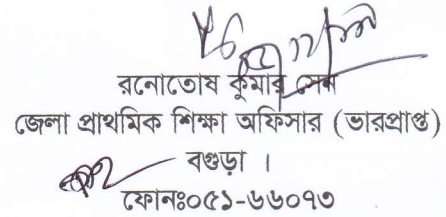 রনোতোষ কুমার সেন
জেলা প্রাথমিক শিক্ষা অফিসার (ভারপ্রাপ্ত)
বগুড়া ।
ফোনঃ০৫১-৬৬০৭৩